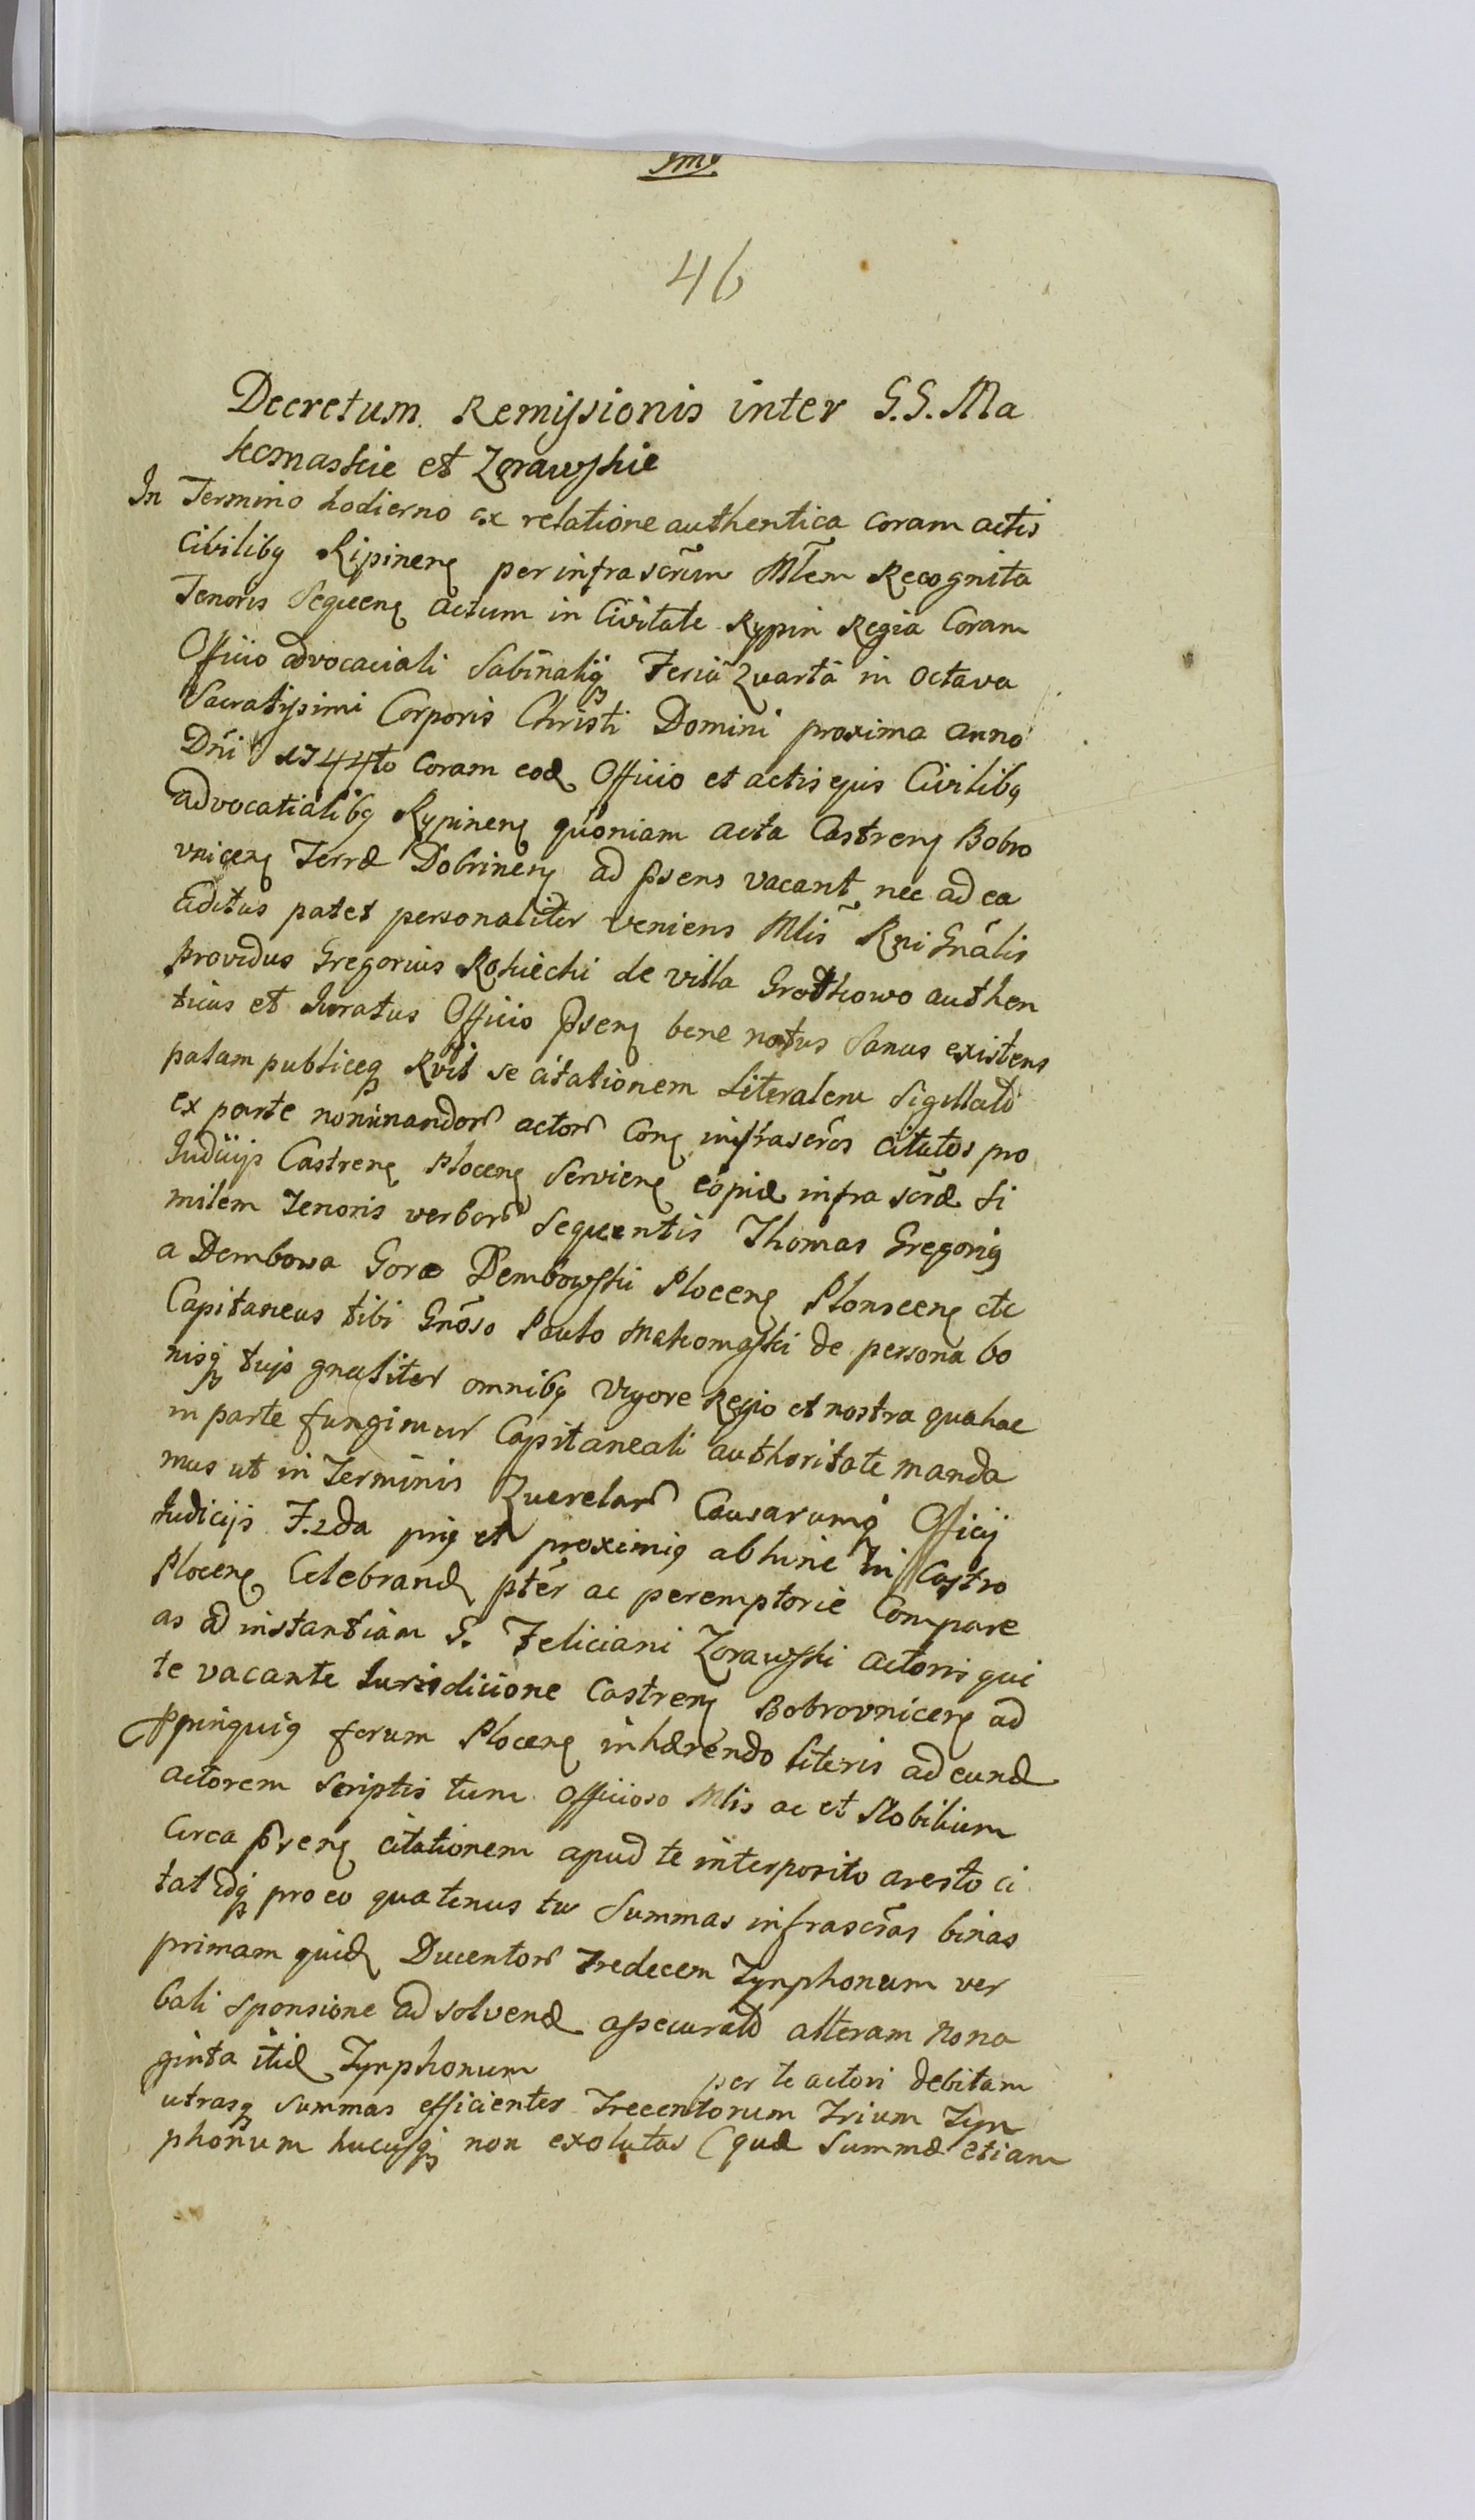 46
Decretum Remissionis inter G.G. Ma
komaskie et Zorawskie
In Termino hodierno ex relatione authentica coram actis
Civilibq Ripineñ per infrascrum Mlem Recognita
Tenoris Sequeñ actum in Civitate Rypin Regia Coram
Officio advocaciali Sabinaliq Feria Quarta in Octava
Sacratissimi Corporis Christi Domini proxima anno
Dni 1744to Coram eod Officio et actis ejus Civilibq
advocatialibq Rypineñ quoniam acta Castreñ Bobro
vniceñ Terræ Dobrineñ ad psens vacant nec ad ea
aditus patet personaliter veniens Mlis Rni Gnalis
providus Gregorius Rokiecki de villa Grothowo authen
ticus et Juratus Officio pseñ bene notus sanus existens
palam publiceq Rvit se citationem Literalem Sigillatã
ex parte nominandor actor Coñ infrascros citatos pro
Judicijs Castreñ Ploceñ Servieñ copiæ infra scræ Si
milem Tenoris verbor Sequentis Thomas Gregorig
a Dembowa Gora Dembowski Ploceñ Plonsceñ etc
Capitaneus tibi Gnoso Paulo Makomaski de persona bo
nisq tuis gnaliter omnibq Vigore Regio et nostra qua hac
in parte fungimur Capitaneali authoritate manda
mus ut in Terminis Querelar Causarumq Officij
Judicijs F.2da priq et proximiq abhinc In Castro
Ploceñ Celebrand pter ac peremptorie Compare
as ad instantiam G. Feliciani Zorawski actoris qui
te vacante Jurisdicione Castreñ Bobrovniceñ ad
ppinquiq forum Ploceñ inhærendo literis ad eund
actorem scriptis tum officioso Mlis ac et Nobilium
Circa pseñ citationem apud te interposito aresto ci
tat idq pro eo quatenus tu Summas infrascras binas
primam quid Ducentor Tredecem Tynphonum ver
bali sponsione ad solvend assecuratã alteram nona
ginta itid Tynphonum per te actori debitam
utrasq summas efficientes Trecentorum Trium Tyn
phonum hucusq non exolutas (quæ Summæ etiam